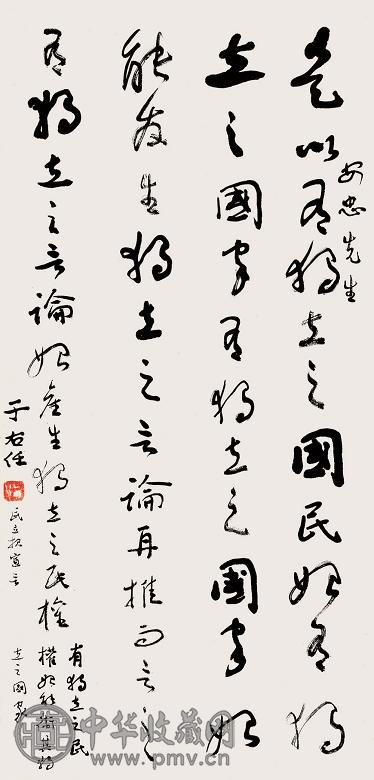 忠先生
是以有獨立之國民始有獨
立之國家有獨立之國家始
能發生獨立之言論再推而言之
有獨立之言論始產生獨立之民權
有獨立之民
權始能衛其獨
立之國家
民立報宣言
于右任
中华收藏网
www.pmv.cn